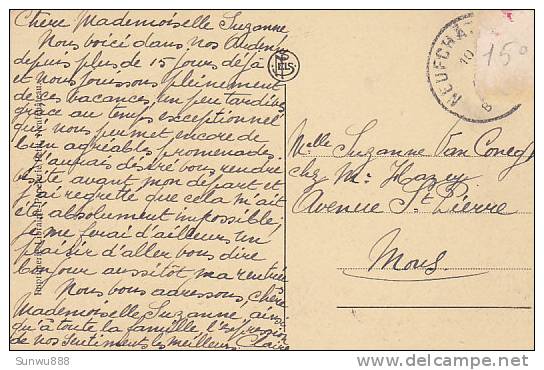 Chère Mademoiselle Suzanne
Nous voici dans nos Ardennes
depuis plus de 15 jours déjà
et nous jouissons pleinement
de ces vacances, un peu tardives
grâce au temps exceptionnel
qui nous permet encore de
bien agréables promenades.
J'aurais désiré vous rendre
visite avant mon départ et
j'ai regretté que cela m'ait
été absolument impossible,
je me ferai d'ailleurs un
plaisir d'aller vous dire
bonjour aussitôt ma rentrée
Nous vous adressons, chère
Mademoiselle Suzanne, ainsi
qu'à toute la famille l'expression
de nos sentiments les meilleurs. Claire
NEUFCHÂT
10
8
15°
Melle Suzanne Van
chez Mr Hazey
Avenue St Pierre
Mons.
Sunwu888
www.delcampe.net